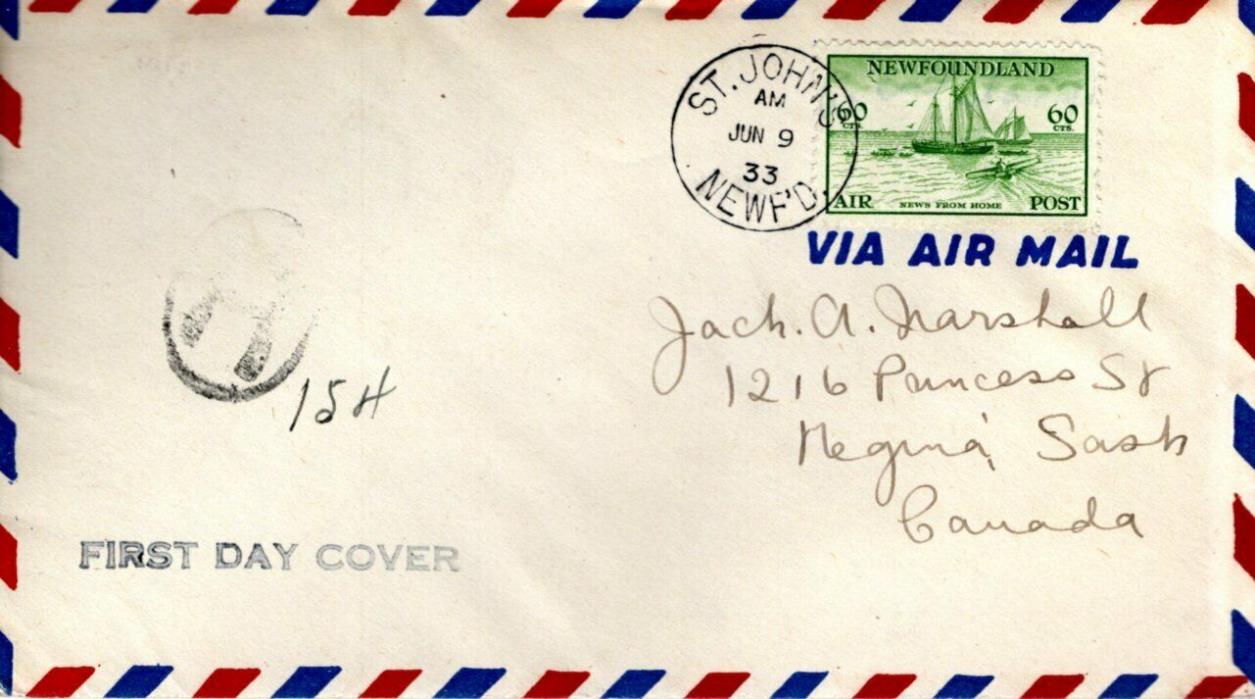 ST. JOHN'S
AM
JUN 9
33
NEWF'D.
NEWFOUNDLAND
60 CTS.
60 CTS.
AIR NEWS FROM HOME POST
VIA AIR MAIL
Jack. A. Marshall
1216 Princess St
Regina, Sask
Canada
T
FIRST DAY COVER